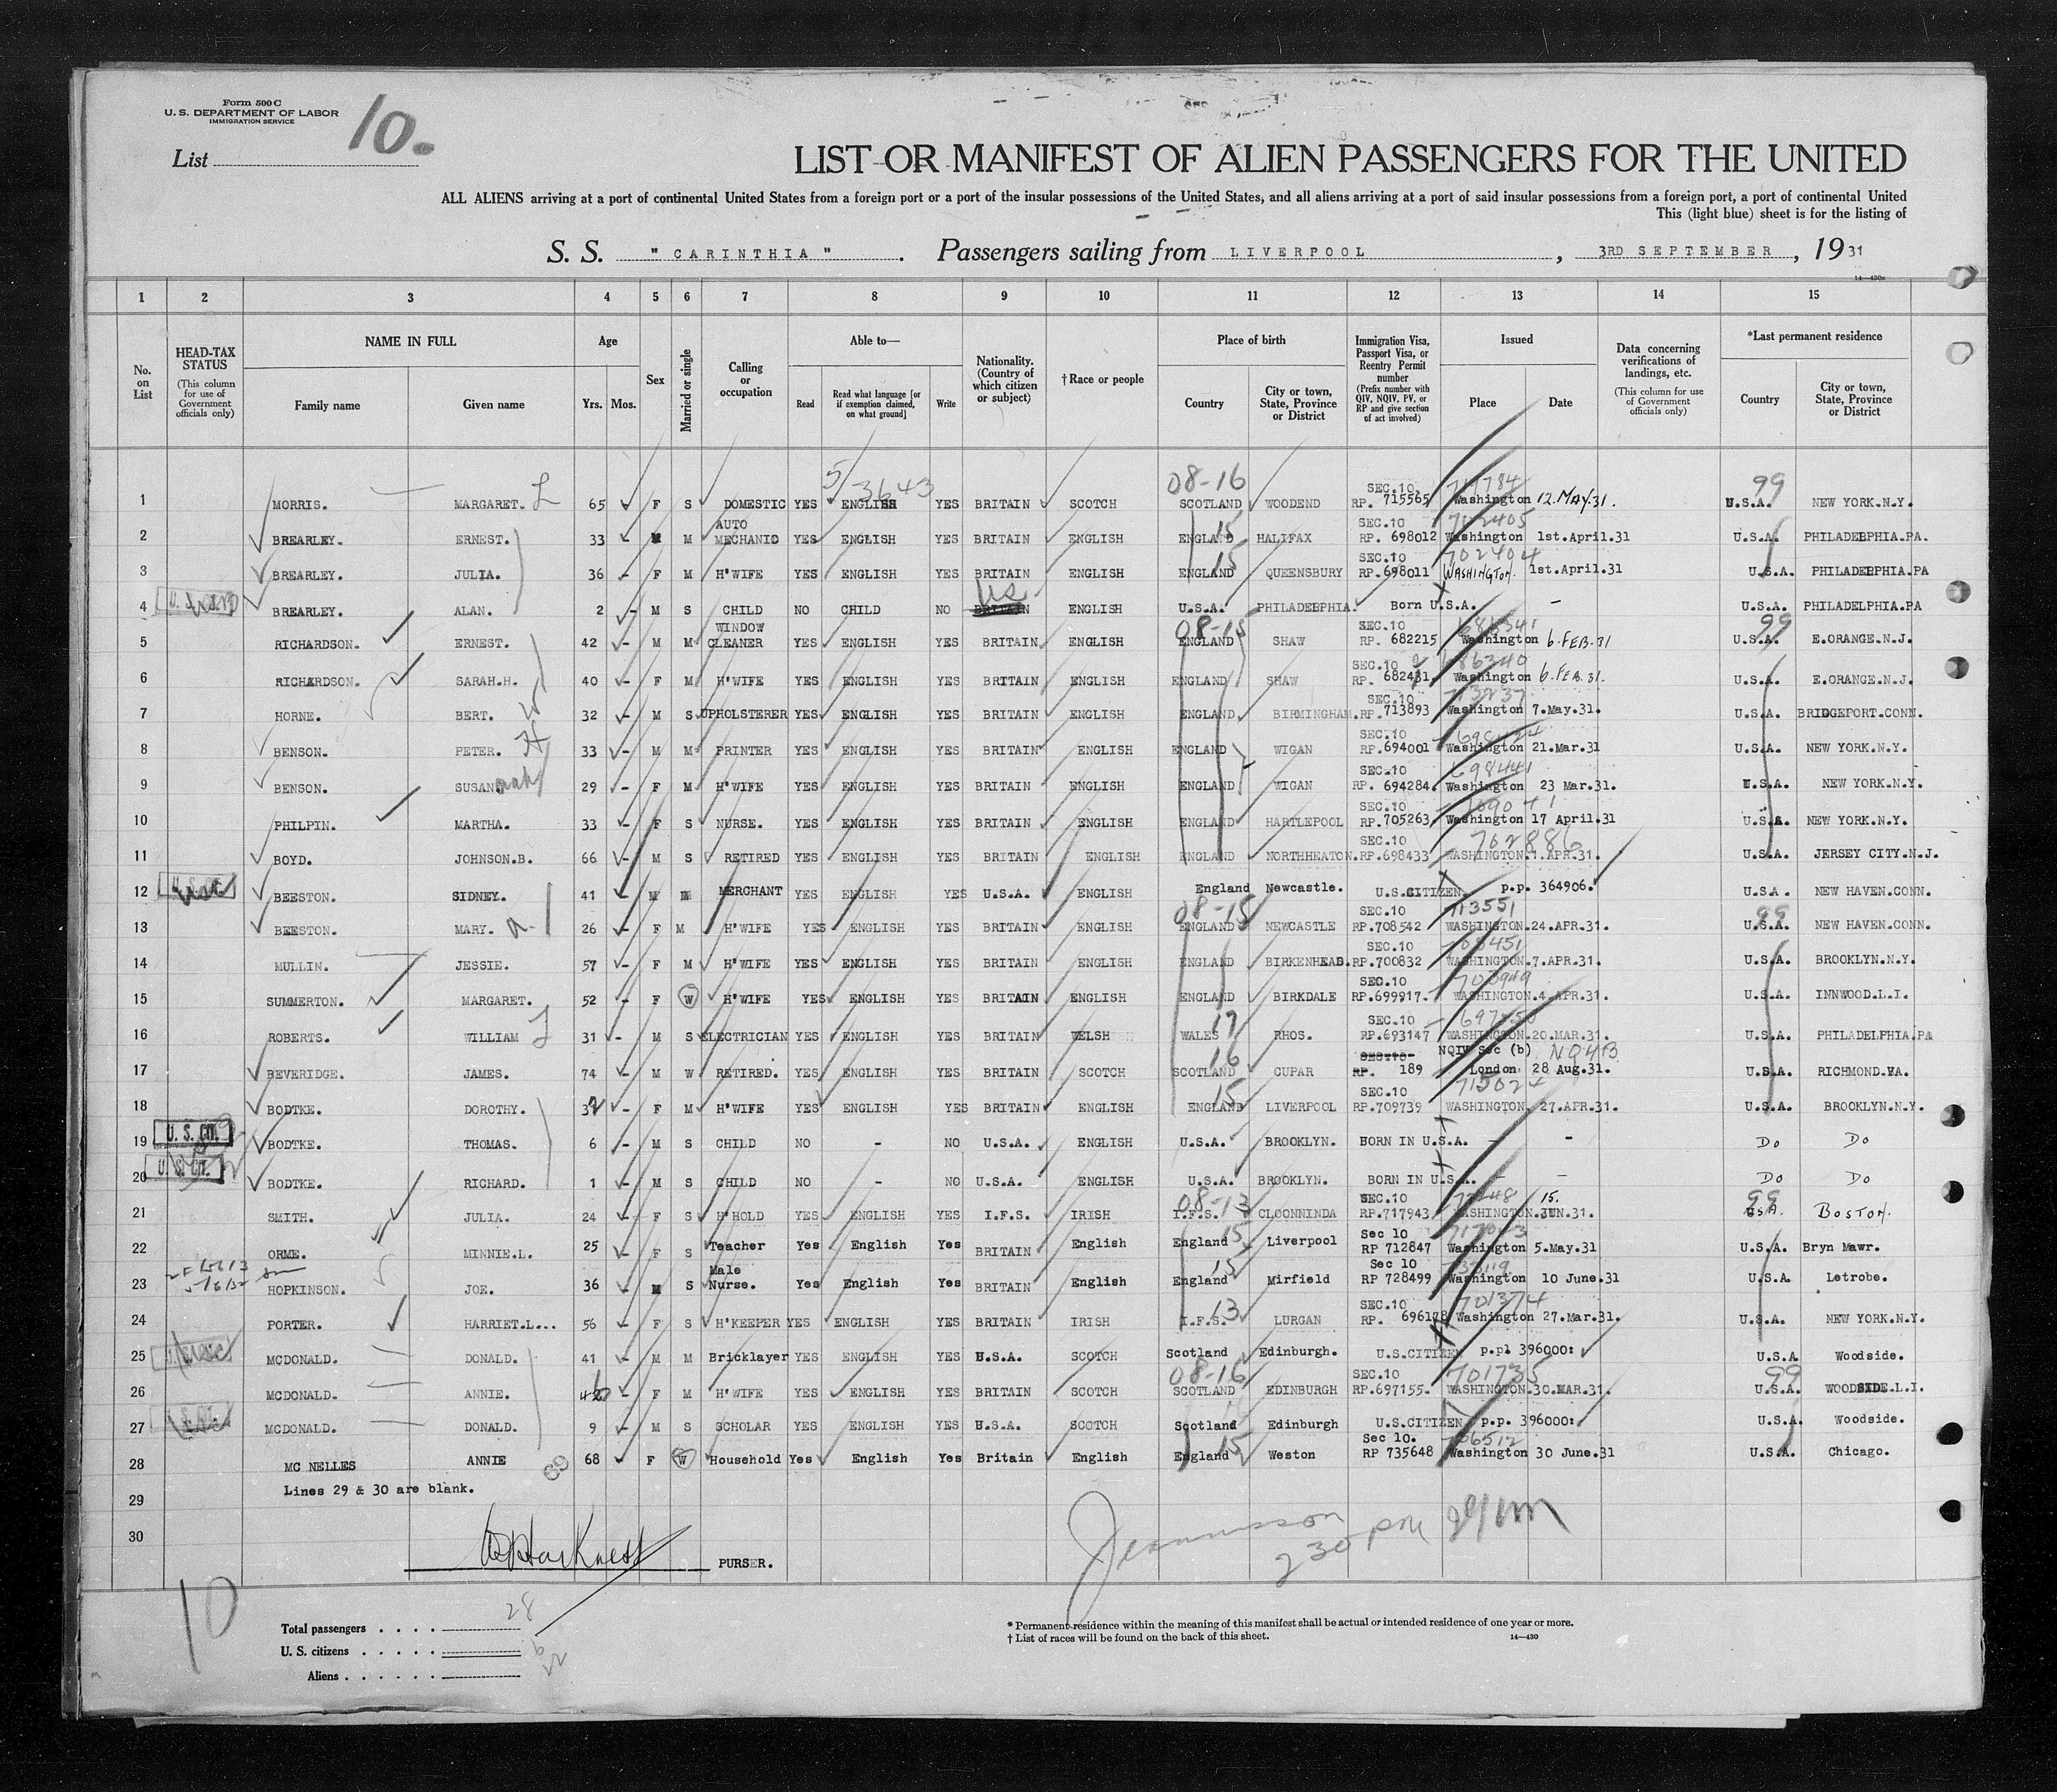 Form 500 C
U. S. DEPARTMENT OF LABOR
IMMIGRATION SERVICE
10.
List
LIST OR MANIFEST OF ALIEN PASSENGERS FOR THE UNITED
ALL ALIENS arriving at a port of continental United States from a foreign port or a port of the insular possessions of the United States, and all aliens arriving at a port of said insular possessions from a foreign port, a port of continental United
This (light blue) sheet is for the listing of
S. S. "CARINTHIA". Passengers sailing from LIVERPOOL, 3RD SEPTEMBER, 1931
14—430a
1 2 3 4 5 6 7 8 9 10 11 12 13 14 15
No. on List
HEAD-TAX STATUS (This column for use of Government officials only)
NAME IN FULL Family name Given name
Age Yrs. Mos.
Sex
Married or single
Calling or occupation
Able to— Read Read what language [or if exemption claimed, on what ground] Write
Nationality. (Country of which citizen or subject)
† Race or people
Place of birth Country City or town, State, Province or District
Immigration Visa, Passport Visa, or Reentry Permit number (Prefix number with QIV, NQIV, PV, or RP and give section of act involved)
Issued Place Date
Data concerning verifications of landings, etc. (This column for use of Government officials only)
*Last permanent residence Country City or town, State, Province or District
5/3643 08-16 99
1 MORRIS. MARGARET. 65 F S DOMESTIC YES ENGLISH YES BRITAIN SCOTCH SCOTLAND WOODEND SEC.10. RP. 715565 Washington 12.MAY.31. U.S.A. NEW YORK.N.Y.
2 BREARLEY. ERNEST. 33 M M AUTO MECHANIC YES ENGLISH YES BRITAIN ENGLISH ENGLAND 15 HALIFAX SEC.10 RP. 698012 702405 Washington 1st.April.31 U.S.A. PHILADELPHIA.PA.
3 BREARLEY. JULIA. 36 F M H'WIFE YES ENGLISH YES BRITAIN ENGLISH ENGLAND 15 QUEENSBURY SEC.10 RP. 698011 702404 WASHINGTON. 1st.April.31 U.S.A. PHILADELPHIA.PA
4 BREARLEY. ALAN. 2 M S CHILD NO CHILD NO BRITAIN US ENGLISH U.S.A. PHILADELPHIA. Born U.S.A. - U.S.A. PHILADELPHIA.PA
5 RICHARDSON. ERNEST. 42 M M WINDOW CLEANER YES ENGLISH YES BRITAIN ENGLISH 08-15 ENGLAND SHAW SEC.10 RP. 682215 Washington 6.FEB.31 99 U.S.A. E.ORANGE.N.J.
6 RICHARDSON. SARAH.H. 40 F M H'WIFE YES ENGLISH YES BRITAIN ENGLISH ENGLAND SHAW SEC.10 RP. 682431. 686340 Washington 6.FEB.31. U.S.A. E.ORANGE.N.J.
7 HORNE. BERT. W 32 M S UPHOLSTERER YES ENGLISH YES BRITAIN ENGLISH ENGLAND BIRMINGHAM. SEC.10 RP. 713893 Washington 7.May.31. U.S.A. BRIDGEPORT.CONN.
8 BENSON. PETER. H 33 M M PRINTER YES ENGLISH YES BRITAIN ENGLISH ENGLAND WIGAN SEC.10 RP.694001 Washington 21.Mar.31 U.S.A. NEW YORK.N.Y.
9 BENSON. SUSANnah 29 F M H'WIFE YES ENGLISH YES BRITAIN ENGLISH ENGLAND WIGAN SEC.10 RP. 694284. 698441 Washington 23 Mar.31. U.S.A. NEW YORK.N.Y.
10 PHILPIN. MARTHA. 33 F S NURSE. YES ENGLISH YES BRITAIN ENGLISH ENGLAND HARTLEPOOL SEC.10 RP.705263. Washington 17 April.31 U.S.A. NEW YORK.N.Y.
11 BOYD. JOHNSON.B. 66 M S RETIRED YES ENGLISH YES BRITAIN ENGLISH ENGLAND NORTHHEATON. SEC.10 RP.698433 702886 WASHINGTON.1.APR.31. U.S.A. JERSEY CITY.N.J.
12 BEESTON. SIDNEY. 41 M M MERCHANT YES ENGLISH YES U.S.A. ENGLISH England Newcastle. U.S.CITIZEN. p.p. 364906. U.S.A. NEW HAVEN.CONN.
13 BEESTON. MARY. a. 26 F M H'WIFE YES ENGLISH YES BRITAIN ENGLISH 08-15 ENGLAND NEWCASTLE SEC.10 RP.708542 713551 WASHINGTON.24.APR.31. 99 U.S.A. NEW HAVEN.CONN.
14 MULLIN. JESSIE. 57 F M H'WIFE YES ENGLISH YES BRITAIN ENGLISH ENGLAND BIRKENHEAD. SEC.10 RP.700832 WASHINGTON.7.APR.31. U.S.A. BROOKLYN.N.Y.
15 SUMMERTON. MARGARET. 52 F W H'WIFE YES ENGLISH YES BRITAIN ENGLISH ENGLAND BIRKDALE SEC.10 RP.699917. WASHINGTON.4.APR.31. U.S.A. INNWOOD.L.I.
16 ROBERTS. WILLIAM 31 M S ELECTRICIAN YES ENGLISH YES BRITAIN WELSH WALES 17 RHOS. SEC.10 RP.693147 WASHINGTON.20.MAR.31. U.S.A. PHILADELPHIA.PA
17 BEVERIDGE. JAMES. 74 M W RETIRED. YES ENGLISH YES BRITAIN SCOTCH SCOTLAND 16 CUPAR SEC.10 RP. 189 NQIV Sec (b) London 28 Aug.31. U.S.A. RICHMOND.VA.
18 BODTKE. DOROTHY. 32 F M H'WIFE YES ENGLISH YES BRITAIN ENGLISH ENGLAND 15 LIVERPOOL SEC.10 RP.709739 715024 WASHINGTON. 27.APR.31. U.S.A. BROOKLYN.N.Y.
U. S. CIT.
19 BODTKE. THOMAS. 6 M S CHILD NO - NO U.S.A. ENGLISH U.S.A. BROOKLYN. BORN IN U.S.A. - - Do Do
U. S. CIT.
20 BODTKE. RICHARD. 1 M S CHILD NO - NO U.S.A. ENGLISH U.S.A. BROOKLYN. BORN IN U.S.A. - - Do Do
21 SMITH. JULIA. 24 F S H'HOLD YES ENGLISH YES I.F.S. IRISH 08-13 I.F.S. CLOONNINDA SEC.10 RP.717943 WASHINGTON 15.JUN.31. 99 U.S.A. BOSTON.
22 ORME. MINNIE.L. 25 F S Teacher Yes English Yes BRITAIN English England 15 Liverpool Sec 10 RP 712847 717043 Washington 5.May.31 U.S.A. Bryn Mawr.
23 HOPKINSON. JOE. 36 M S Male Nurse. Yes English Yes BRITAIN English England 15 Mirfield Sec 10 RP 728499 Washington 10 June.31 U.S.A. Letrobe.
24 PORTER. HARRIET.L... 56 F S H'KEEPER YES ENGLISH YES BRITAIN IRISH I.F.S. 13 LURGAN SEC.10 RP. 696178 701374 Washington 27.Mar.31. U.S.A. NEW YORK.N.Y.
25 MCDONALD. DONALD. 41 M M Bricklayer YES ENGLISH YES U.S.A. SCOTCH Scotland Edinburgh. U.S.CITIZEN p.pl 396000: U.S.A Woodside.
26 MCDONALD. ANNIE. F M H'WIFE YES ENGLISH YES BRITAIN SCOTCH 08-16 SCOTLAND EDINBURGH SEC.10 RP.697155. 701735 WASHINGTON.30.MAR.31. 99 U.S.A. WOODSIDE.L.I.
27 MCDONALD. DONALD. 9 M S SCHOLAR YES ENGLISH YES U.S.A. SCOTCH Scotland Edinburgh U.S.CITIZEN p.p. 396000: U.S.A. Woodside.
28 MC NELLES ANNIE 69 68 F W Household Yes English Yes Britain English England 15 Weston Sec 10. RP 735648 Washington 30 June.31 U.S.A. Chicago.
29 Lines 29 & 30 are blank.
30
PURSER.
230 pm
10
Total passengers . . . . 28
U. S. citizens . . . . . 6
Aliens . . . . . . 22
* Permanent residence within the meaning of this manifest shall be actual or intended residence of one year or more.
† List of races will be found on the back of this sheet.
14—430